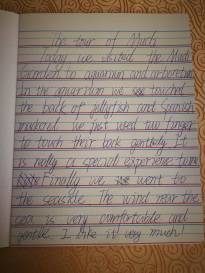 The tour of
Today we visited the
Garden to aquarium and arboretum
In the aquarium we touched
the back of jellyfish and Spanish
mackerel we just used two finger
to touch their back gently. It
is really a special experience
Finally we went to
the seaside. The wind near the
sea is very comfortable and
gentle. I like it very much!